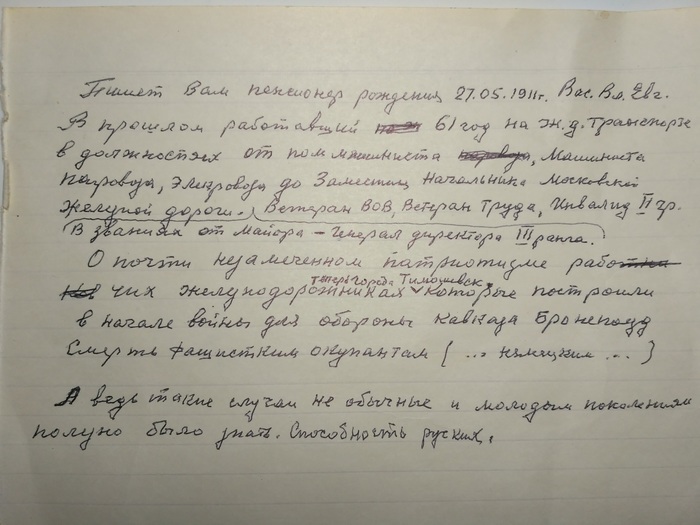 Пишет Вам пенсионер рождения 27.05.1911г. Вас. Вл. Евг.
В прошлом работавший 61 год на ж.д. Транспорте
в должностях от пом машиниста, Машиниста
паровоза, Элекровоза до Заместит Начальника Московской
железной дороги. Ветеран ВОВ, Ветеран Труда, Инвалид II гр.
(В званиях от Майора – Генерал директора III ранга.
О почти незамеченном патриотизме рабо
теперь города Тимошевск
чих железнодорожниках которые построили
в начале войны для обороны Кавказа Бронепоезд
Смерть фашистким окупантам (... немецким ...)
А ведь такие случаи не обычные и молодым поколениям
полезно было знать. Способность руских.